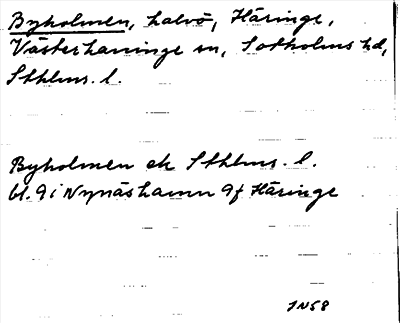 Byholmen, halvö, Häringe,
Västerhaninge sn, Sotholms hd,
Sthlms. l.
Byholmen ek Sthlms. l.
bl. 9 i Nynäshamn 9f Häringe
JN58